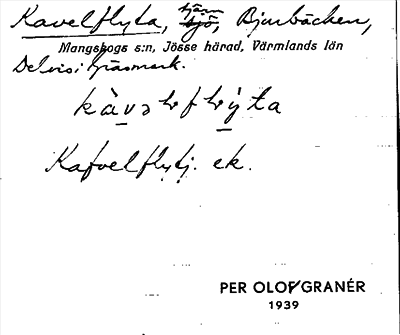 Kavelflyta, tjärn sjö, Bjurbäcken,
Mangskogs s:n, Jösse härad, Värmlands län
Delvis i Gräsmark.
Kafvelflytj. ek.
PER OLOF GRANÉR
1939